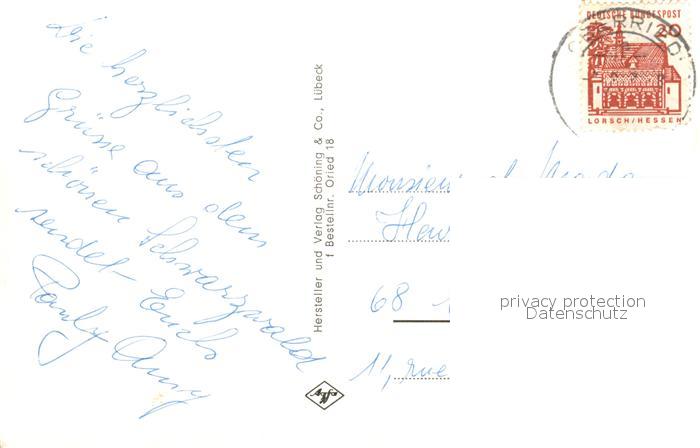 Die herzlichsten
Grüsse aus dem
schönen Schwarzwald
sendet Euch
Hersteller und Verlag Schöning & Co., Lübeck
f Bestellnr. Oried 18
Agfa
DEUTSCHE BUNDESPOST
20
LORSCH/HESSEN
Monsieur et Mada
68
11, rue
privacy protection
Datenschutz